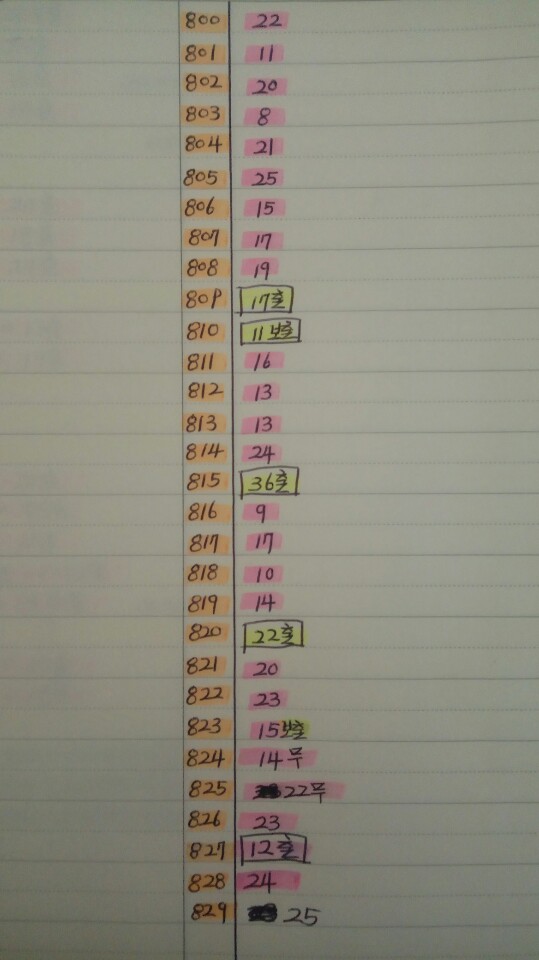 800 22
801 11
802 20
803 8
804 21
805 25
806 15
807 17
808 19
809 17출
810 11보출
811 16
812 13
813 13
814 24
815 36출
816 9
817 17
818 10
819 14
820 22출
821 20
822 23
823 15보출
824 14무
825 22무
826 23
827 12출
828 24
829 25